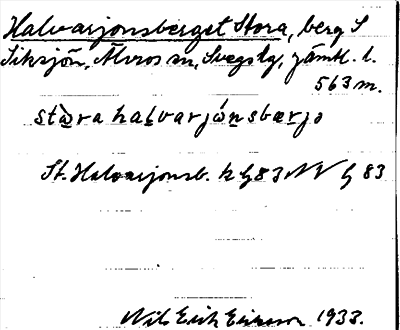 Halvarjonsberget Stora, berg S
Siksjön, Älvros sn, Svegs tg, Jämtl. l.
563 m.
stòra halvarjónsbærjə
St. Halvarjonsb. k G 83 NV G 83
Nils Erik Eriksson 1933.